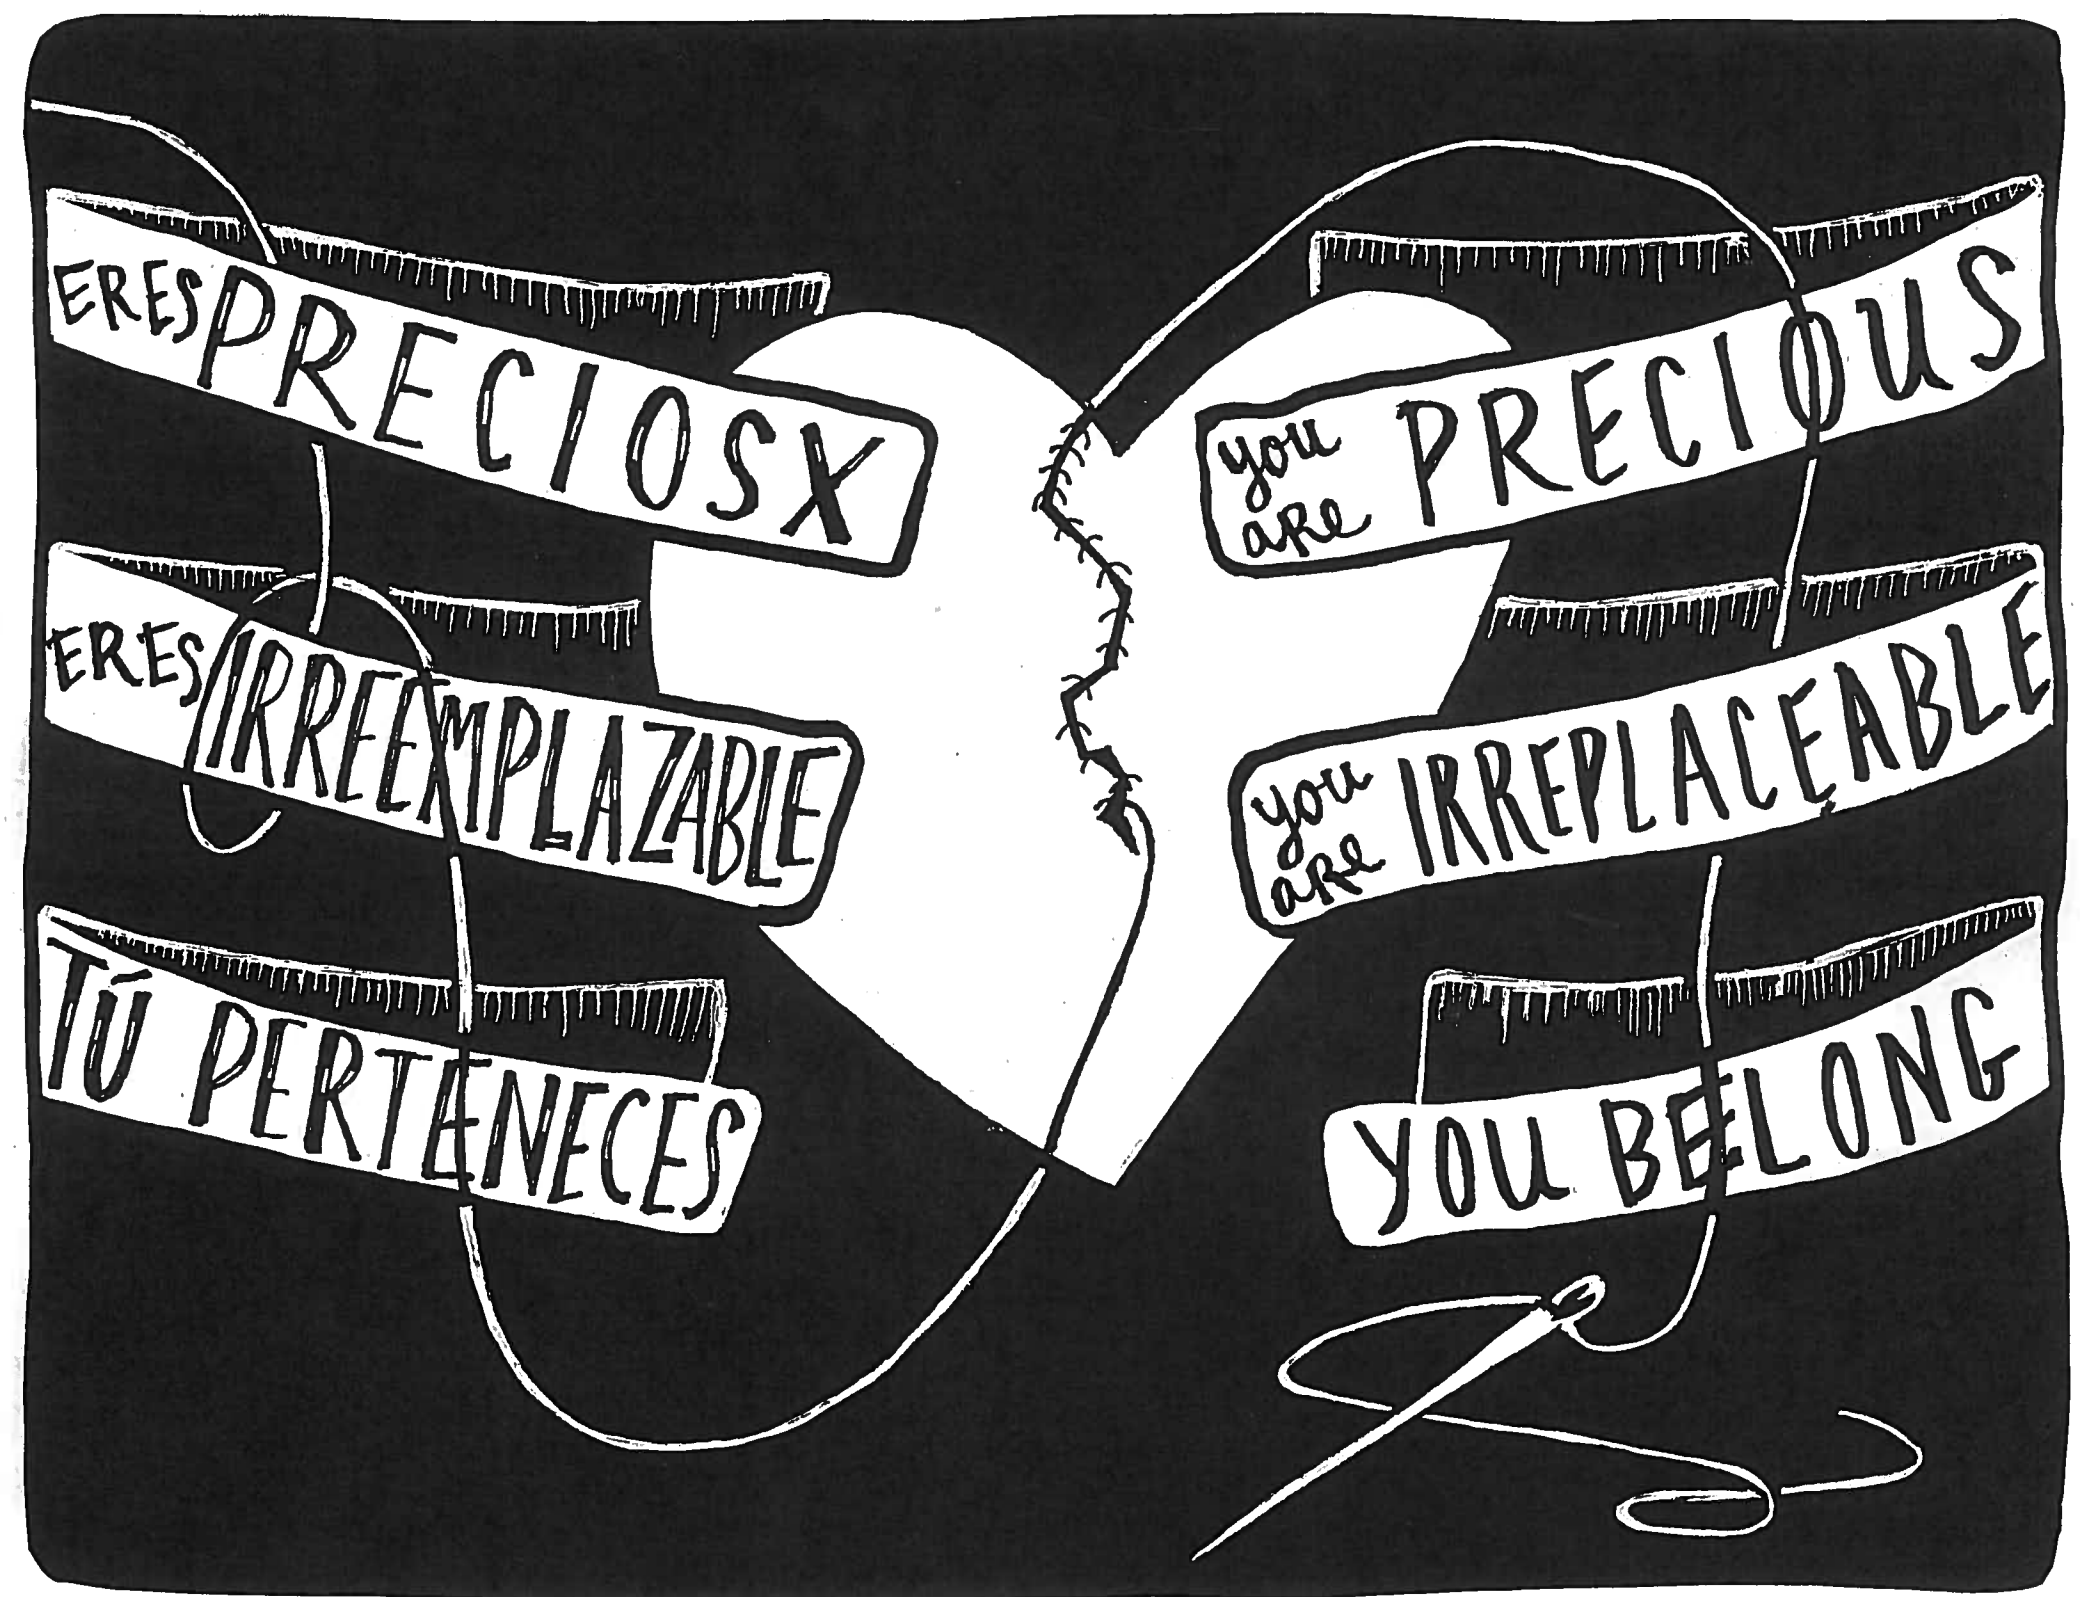 ERES PRECIOSX
ERES IRREEMPLAZABLE
TÚ PERTENECES
you
are PRECIOUS
you
are IRREPLACEABLE
YOU BELONG